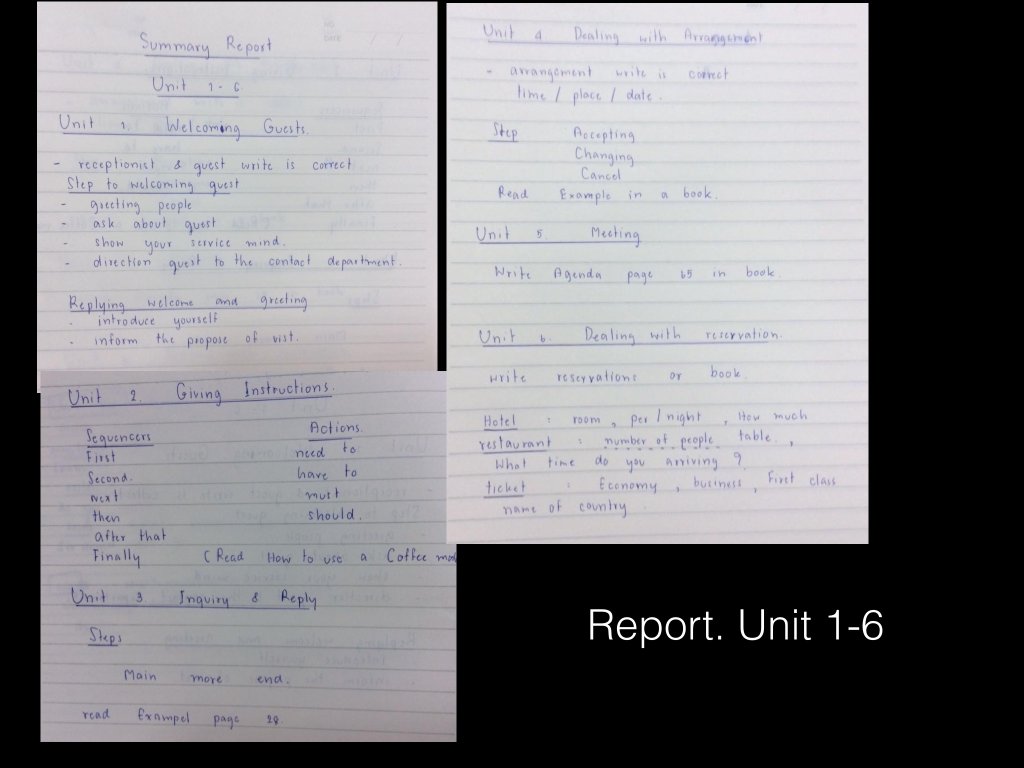 Summary Report
Unit 1-6
Unit 1. Welcoming Guests.
- receptionist & guest write is correct
Step to welcoming guest
- greeting people
- ask about guest
- show your service mind.
- direction guest to the contact department.
Replying welcome and greeting
- introduce yourself
- inform the propose of vist.
Unit 2. Giving Instructions.
Sequencers Actions.
First need to
Second. have to
next must
then should.
after that
Finally (Read How to use a Coffee
Unit 3 Inquiry & Reply
Steps
Main more end.
read Exampel page
Unit 4 Dealing with Arrangement
- arrangement write is correct
time / place / date.
Step Accepting
Changing
Cancel
Read Example in a book.
Unit 5. Meeting
Write Agenda page 65 in book
Unit 6. Dealing with reservation.
write reservations or book.
Hotel : room, per/night, How much
restaurant : number of people table.,
What time do you arriving ?
ticket : Economy, business, First class
name of country
Report. Unit 1-6